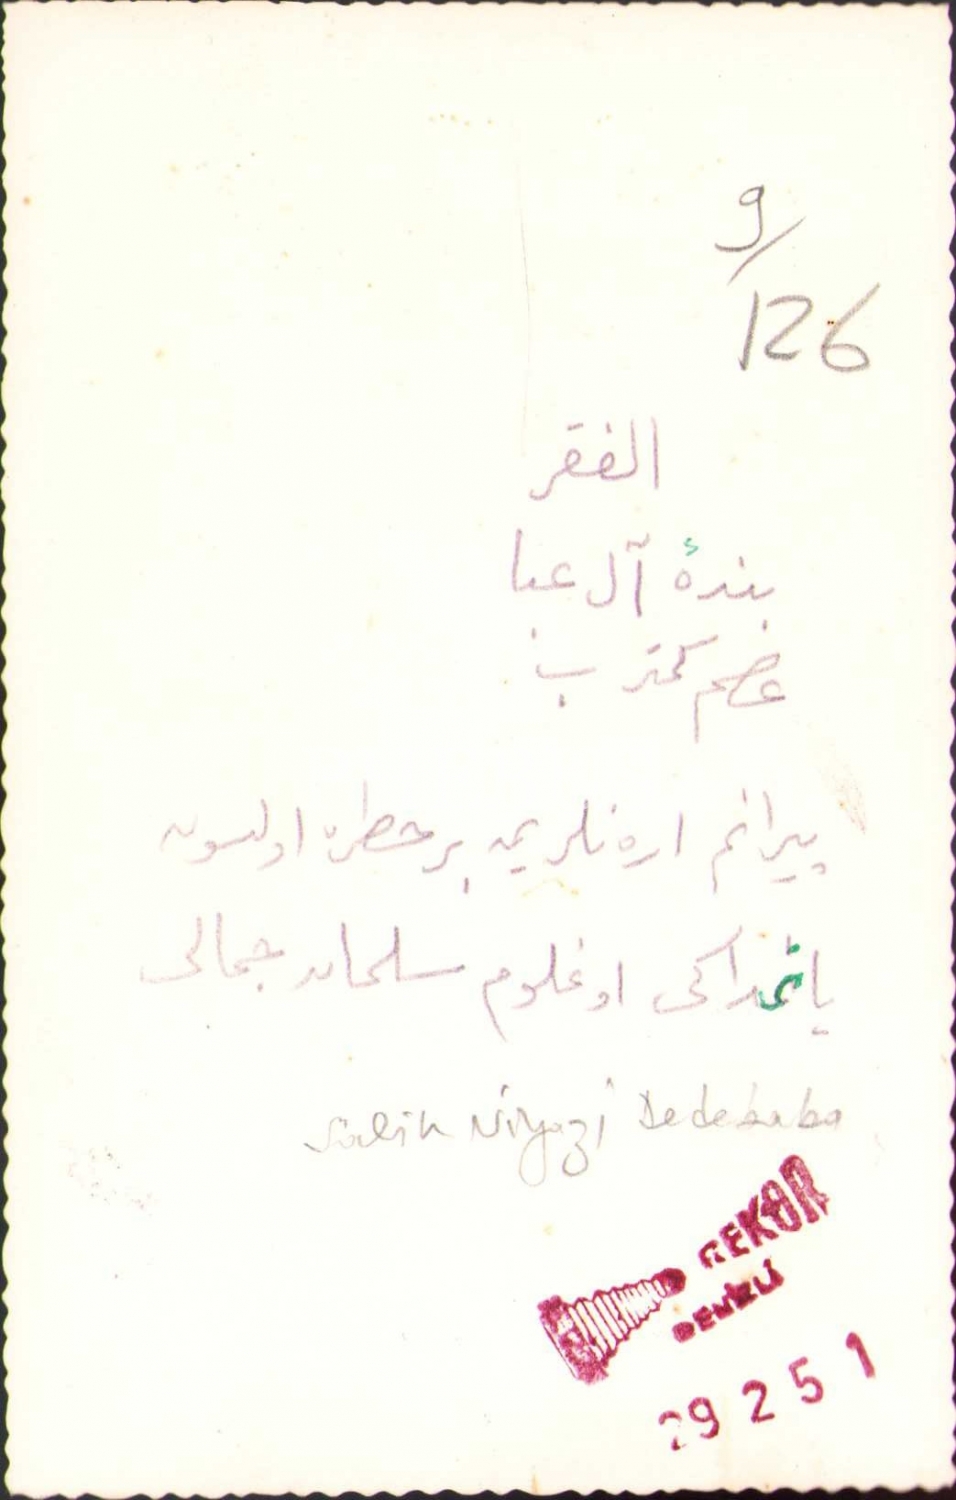 9/
126
الفقر
بندۀ آل عبا
كمتر
پيرانم ارەنلريمه بر حطره اولسون
ياڭمداكى اوغلوم سلمان جمالى
Salih Niyazi Dedebaba
REKOR
DENİZLİ
29 2 5 1